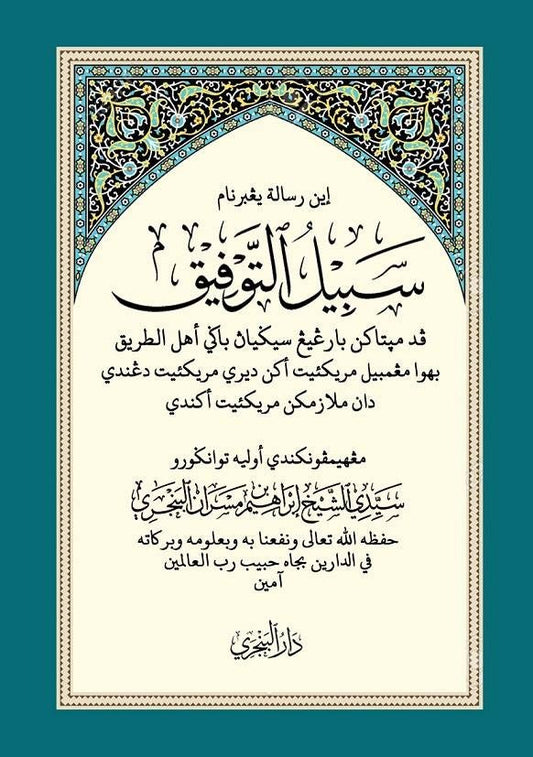 إين رسالة يڠبرنام
سَبِيْلُ ٱلتَّوْفِيْقِ
ڤد مڽتاكن بارڠيڠ سيكيان باݢي أهل الطريق
بهوا مڠمبيل مريكئيت أكن ديري مريكئيت دڠندي
دان ملازمكن مريكئيت أكندي
مڠهيمڤونكندي أوليه توانݢورو
سَيِّدِي ٱلشَّيْخ إِبْرَاهِيْم بْن مَسْرَان ٱلْبَنْجَرِي
حفظه الله تعالى ونفعنا به وبعلومه وبركاته
في الدارين بجاه حبيب رب العالمين
آمين
دَارُ ٱلْبَنْجَرِي